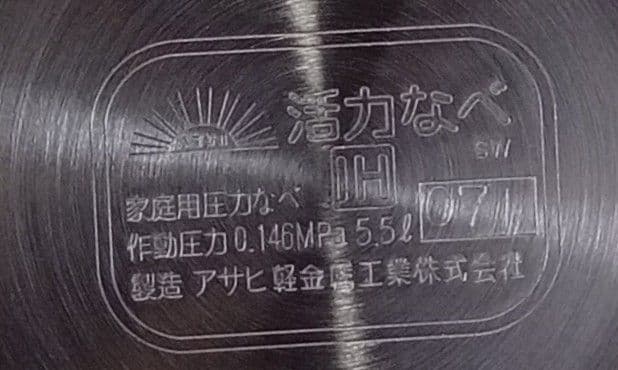 活力なべ
SW
IH
家庭用圧力なべ
作動圧力 0.146MPa 5.5ℓ
製造 アサヒ軽金属工業株式会社